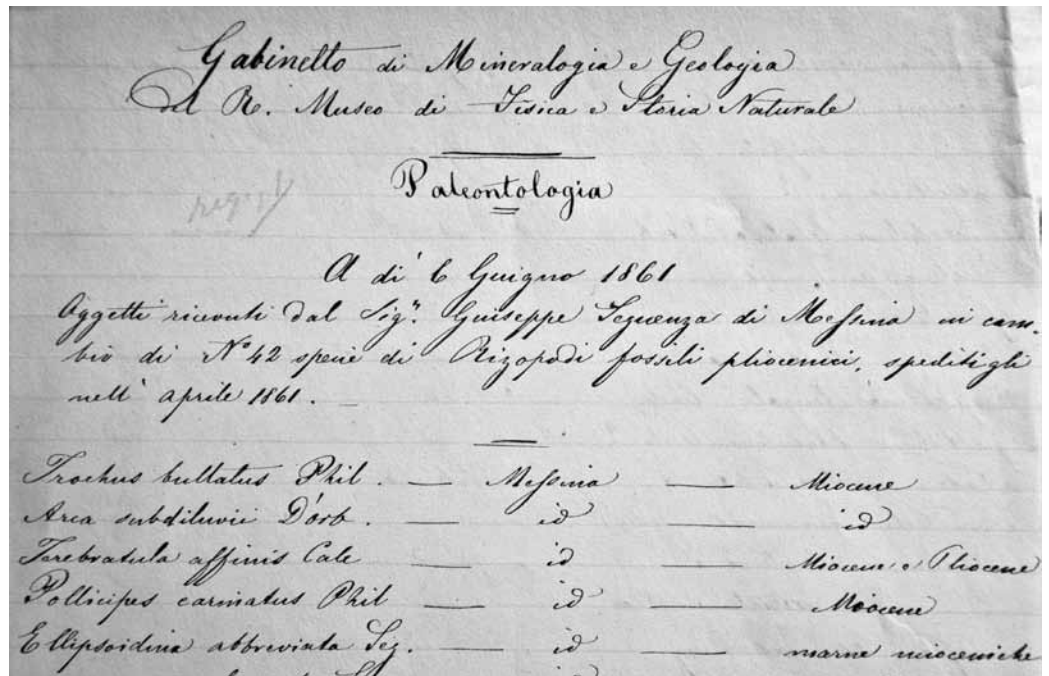 Gabinetto di Mineralogia e Geologia
del R. Museo di Fisica e Storia Naturale
Paleontologia
A dì 6 Guigno 1861
Oggetti ricevuti dal Sigr. Guiseppe Seguenza di Messina in cam-
bio di N° 42 specie di Rizopodi fossili pliocenici, speditigli
nell' aprile 1861. —
Trochus bullatus Phil. — Messina — Miocene
Arca subdiluvii D'orb. — id — id
Terebratula affinis Calc — id — Miocene e Pliocene
Pollicipes carinatus Phil — id — Miocene
Ellipsoidina abbreviata Seg. — id — marne mioceniche